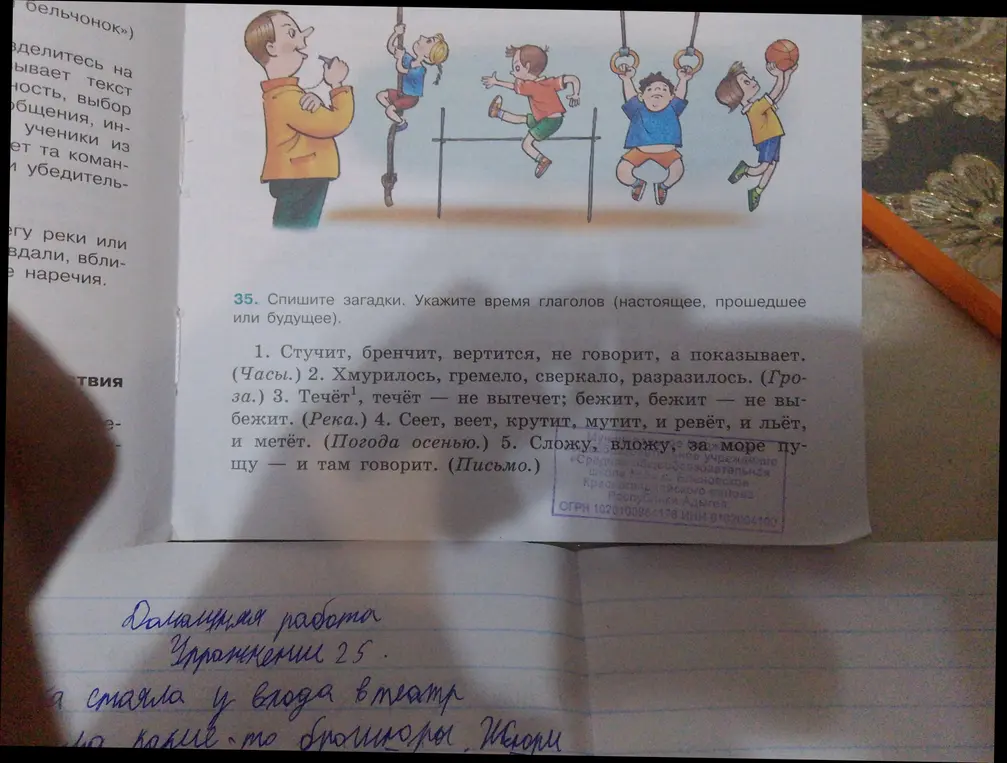 бельчонок»)
зделитесь на
ывает текст
ность, выбор
общения, ин-
ученики из
ет та коман-
и убедитель-
егу реки или
вдали, вбли-
е наречия.
ствия
35. Спишите загадки. Укажите время глаголов (настоящее, прошедшее
или будущее).
1. Стучит, бренчит, вертится, не говорит, а показывает.
(Часы.) 2. Хмурилось, гремело, сверкало, разразилось. (Гро-
за.) 3. Течёт¹, течёт — не вытечет; бежит, бежит — не вы-
бежит. (Река.) 4. Сеет, веет, крутит, мутит, и ревёт, и льёт,
и метёт. (Погода осенью.) 5. Сложу, вложу, за море пу-
щу — и там говорит. (Письмо.)
учреждение
«Средняя общеобразовательная
школа
района
Республики Адыгея
ОГРН ИНН
Домашняя работа
Упражнении 25.
а стояла у входа в театр
ла какие-то брошюры.